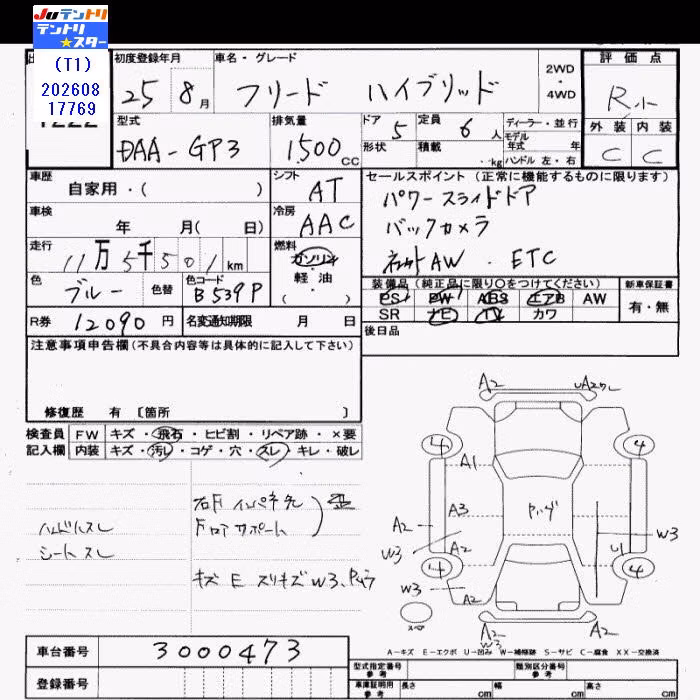 JUテントリ
テントリ
★スター
(T1)
202608
17769
初度登録年月
25 8月
車名・グレード
フリード ハイブリッド
2WD
・
4WD
評価点
R小
型式
DAA-GP3
排気量
1,500cc
ドア 5
形状
定員 6人
積載 kg
ディーラー・並行
モデル
年式 年
ハンドル 左・右
外装 内装
C C
車歴
自家用・( )
シフト
AT
車検
年 月( 日)
冷房
AAC
走行
11万5千501km
燃料
ガソリン
軽・油
( )
色
ブルー
色替
色コード
B539P
R券 12090円
名変通知期限 月 日
セールスポイント(正常に機能するものに限ります)
パワースライドドア
バックカメラ
AW・ETC
装備品(純正品に限り○をつけてください)
PS PW ABS エアB AW
SR ナビ TV カワ
新車保証書
有・無
後日品
注意事項申告欄(不具合内容等は具体的に記入して下さい)
修復歴 有 〔箇所 〕
検査員
記入欄
FW キズ・飛石・ヒビ割・リペア跡・×要
内装 キズ・汚レ・コゲ・穴・スレ・キレ・破レ
ハンドルスレ
シートスレ
右F インパネ先
Fロアサポート
歪
キズ E スリキズ W3、
A2
4 4
A1
A3
A2
A2
W3
W3
U1
4 4
W3
A2
A2
スペア
A2
W3
A2
A-キズ E-エクボ U-凹み W-補修跡 S-サビ C-腐食 XX-交換済
車台番号 3000473
登録番号
型式指定番号
参考
類別区分番号
参考
車庫証明用
参考
長さ cm
幅 cm
高さ cm